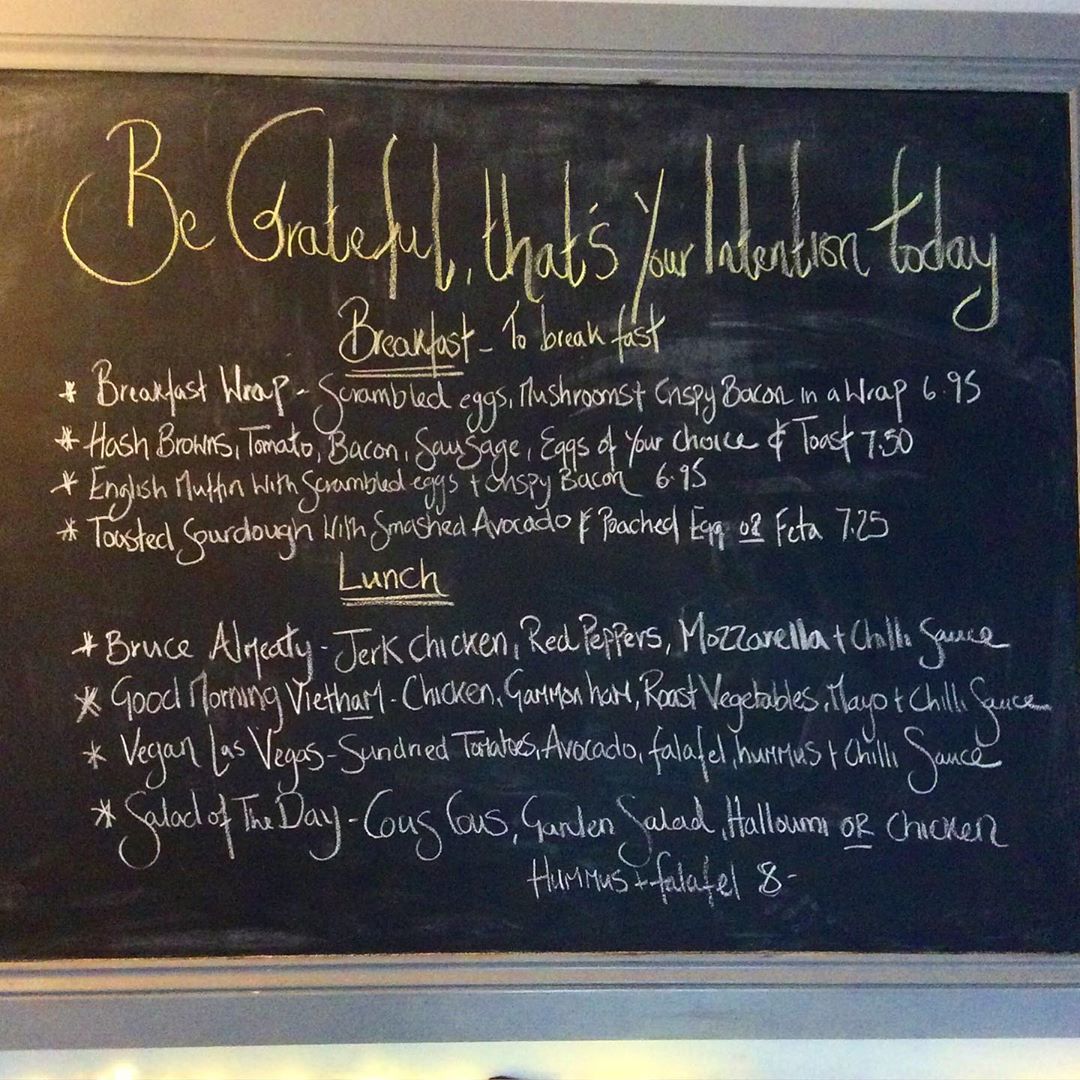 Be Grateful, that's Your Intention today
Breakfast - To break fast
* Breakfast Wrap - Scrambled eggs, Mushrooms + Crispy Bacon in a Wrap 6.95
* Hash Browns, Tomato, Bacon, Sausage, Eggs of Your choice & Toast 7.50
* English Muffin With Scrambled eggs + Crispy Bacon 6.95
* Toasted Sourdough With Smashed Avocado & Poached Egg or Feta 7.25
Lunch
* Bruce Almeaty - Jerk Chicken, Red Peppers, Mozzarella + Chilli Sauce
* Good Morning Vietham - Chicken, Gammon ham, Roast Vegetables, Mayo + Chilli Sauce
* Vegan Las Vegas - Sundried Tomatoes, Avocado, falafel, hummus + Chilli Sauce
* Salad of The Day - Cous Cous, Garden Salad, Halloumi OR Chicken
Hummus + falafel 8-